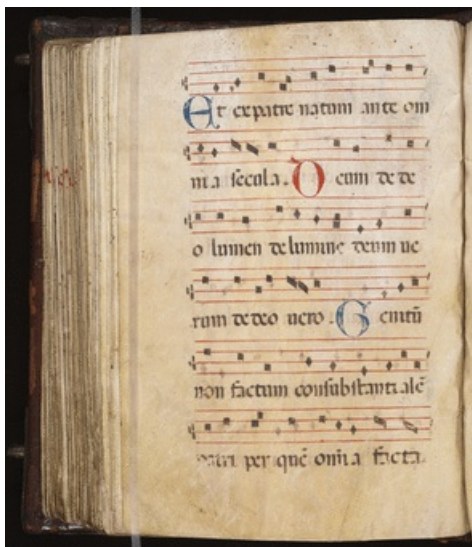 Et ex patre natum ante om
nia secula. Deum de de
o lumen de lumine deum ue
rum de deo uero. Genitū
non factum consubstantialē
patri per quē om̄ia facta